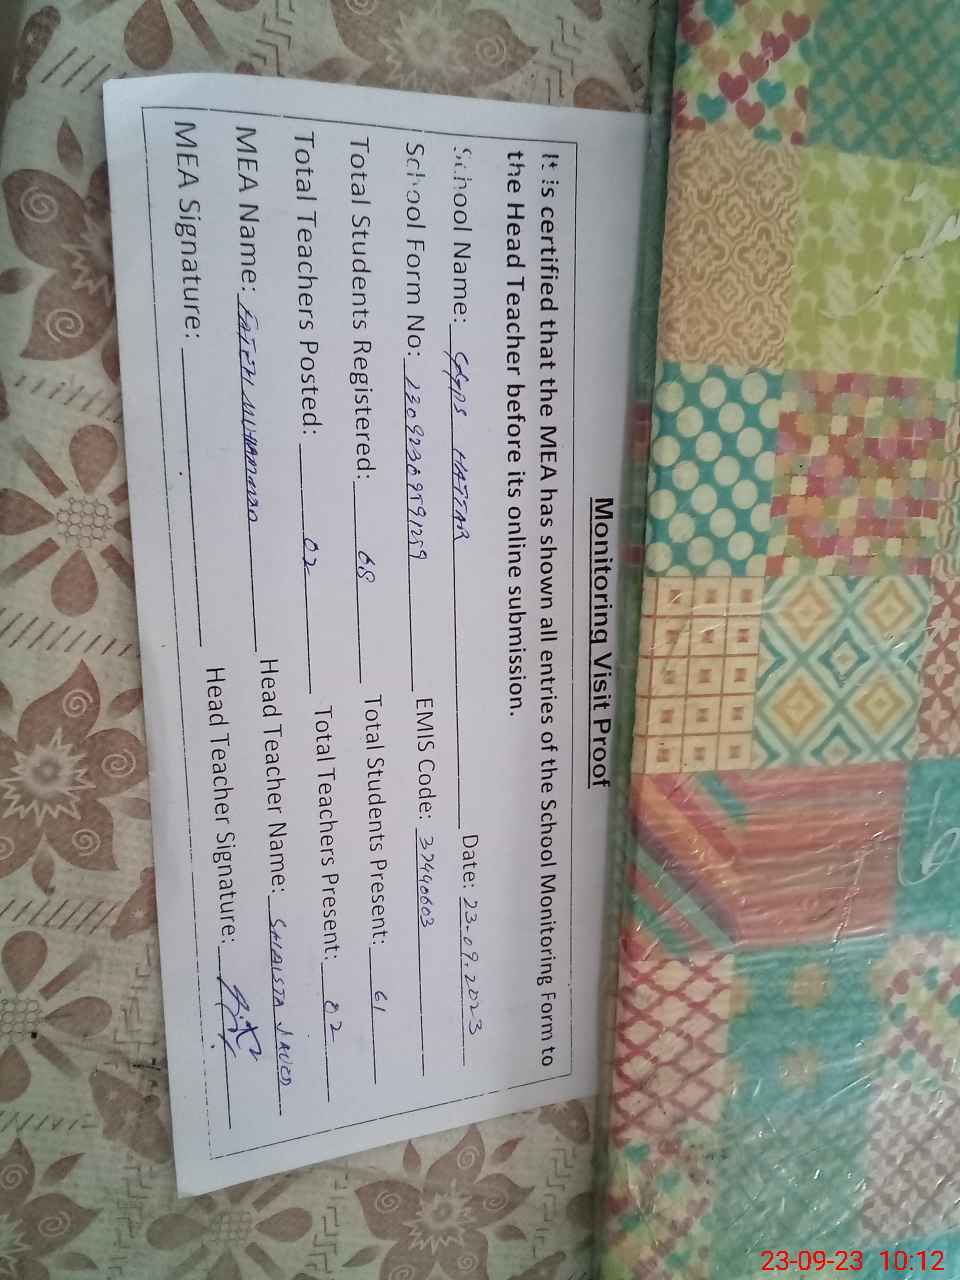 Monitoring Visit Proof
It is certified that the MEA has shown all entries of the School Monitoring Form to
the Head Teacher before its online submission.
School Name: GGPS HATTAR Date: 23-09.2023
School Form No: EMIS Code: 37440603
Total Students Registered: 68 Total Students Present: 61
Total Teachers Posted: 02 Total Teachers Present: 02
MEA Name: FATEH MUHAMMAD Head Teacher Name: SHAISTA JAVED
MEA Signature: Head Teacher Signature:
23-09-23 10:12